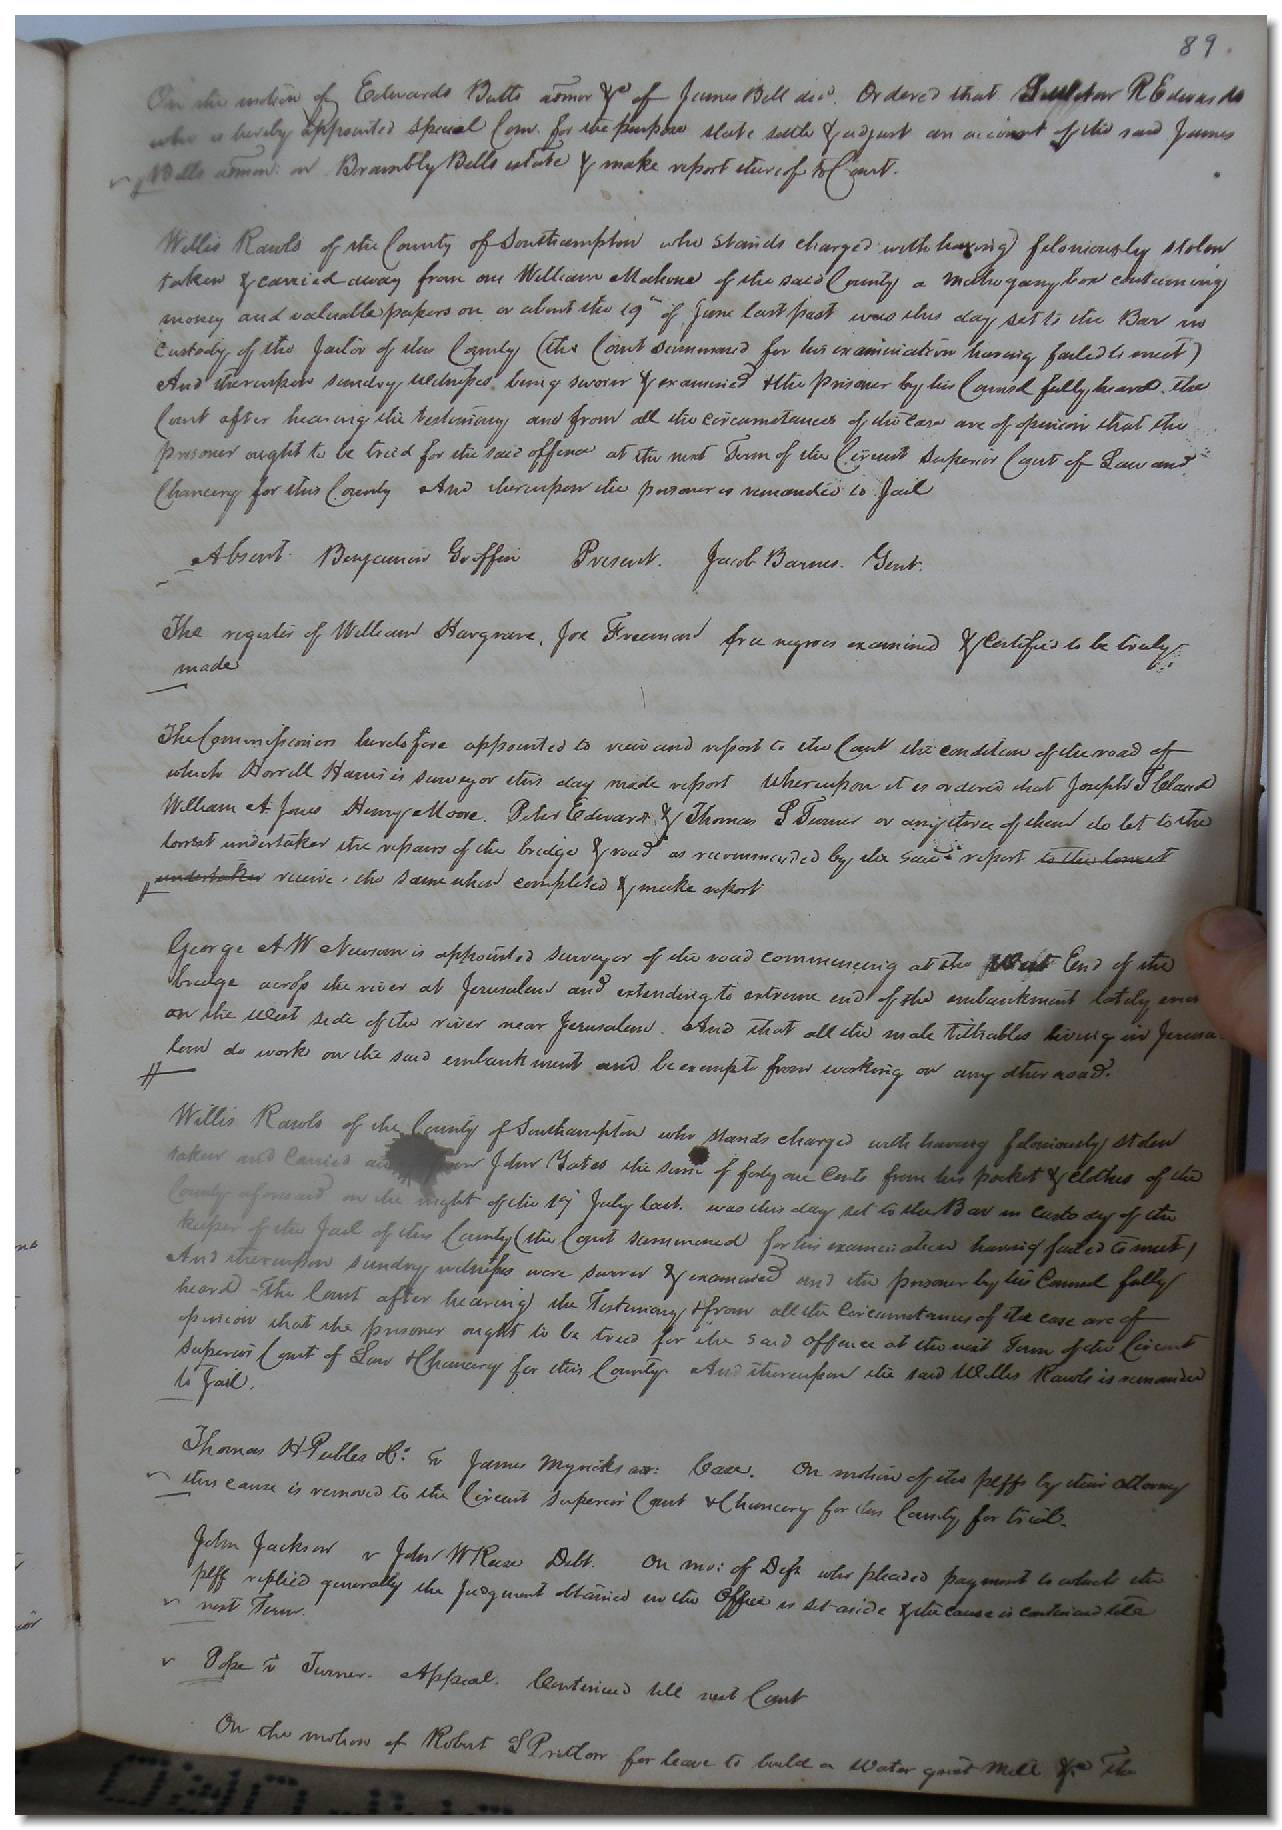 89.
On the motion of Edwards Butts admor &c of James Bell decd. Ordered that R Edwards
who is hereby appointed special Com. for the purpose state settle & adjust an account of the said James
Bells admon: on Brambly Bells estate & make report thereof to Court.
Willis Rawls of the County of Southampton who stands charged with having feloniously stolen
taken & carried away from one William Mahone of the said County a Mahogany box containing
money and valuable papers on or about the 19th of June last past was this day set to the Bar in
custody of the Jailor of the County (the Court summoned for his examination having failed to meet)
And thereupon sundry witnesses being sworn & examined & the prisoner by his Counsel fully heard. the
Court after hearing the testimony and from all the circumstances of the case are of opinion that the
prisoner ought to be tried for the said offence at the next Term of the Circuit Superior Court of Law and
Chancery for this County And thereupon the prisoner is remanded to Jail
Absent Benjamin Griffin Present. Jacob Barnes. Gent.
The register of William Hargrave, Joe Freeman free negroes examined & certified to be truly
made
The Commissioners heretofore appointed to view and report to the Court the condition of the road of
which Howell Harris is surveyor this day made report Whereupon it is ordered that Joseph T Claud
William A. Jones Henry Moore. Peter Edwards & Thomas S Turner or any three of them do let to the
lowest undertaker the repairs of the bridge & road as recommended by the said report to the lowest
undertaker receive the same when completed & make report
George A W Newsom is appointed surveyor of the road commencing at the West End of the
bridge across the river at Jerusalem and extending to extreme end of the embankment lately
on the West side of the river near Jerusalem. And that all the male tithables living in Jerusa
lem do work on the said embankment and be exempt from working on any other road.
Willis Rawls of the County of Southampton who stands charged with having feloniously stolen
taken and carried John Gates the sum of forty one Cents from his pocket & clothes of the
County aforesaid on the night of the 19 July last. was this day set to the Bar in custody of the
keeper of the Jail of this County (the Court summoned for his examination having failed to meet)
And thereupon sundry witnesses were sworn & examined and the prisoner by his Counsel fully
heard - The Court after hearing the Testimony & from all the circumstances of the case are of
opinion that the prisoner ought to be tried for the said offence at the next Term of the Circuit
Superior Court of Law & Chancery for this County. And thereupon the said Willis Rawls is remanded
to Jail.
Thomas H Peebles &c: v James Myricks Case. On motion of the plffs by their attorney
this cause is removed to the Circuit Superior Court & Chancery for this County for trial.
John Jackson v John W Reese Debt. On mo: of Deft who pleaded payment to which the
plff replied generally the Judgment obtained in the Office is set aside & the cause is continued till
next Term.
Pope v Turner. Appeal. Continued till next Court
On the motion of Robert S Pretlow for leave to build a Water grist Mill &c The